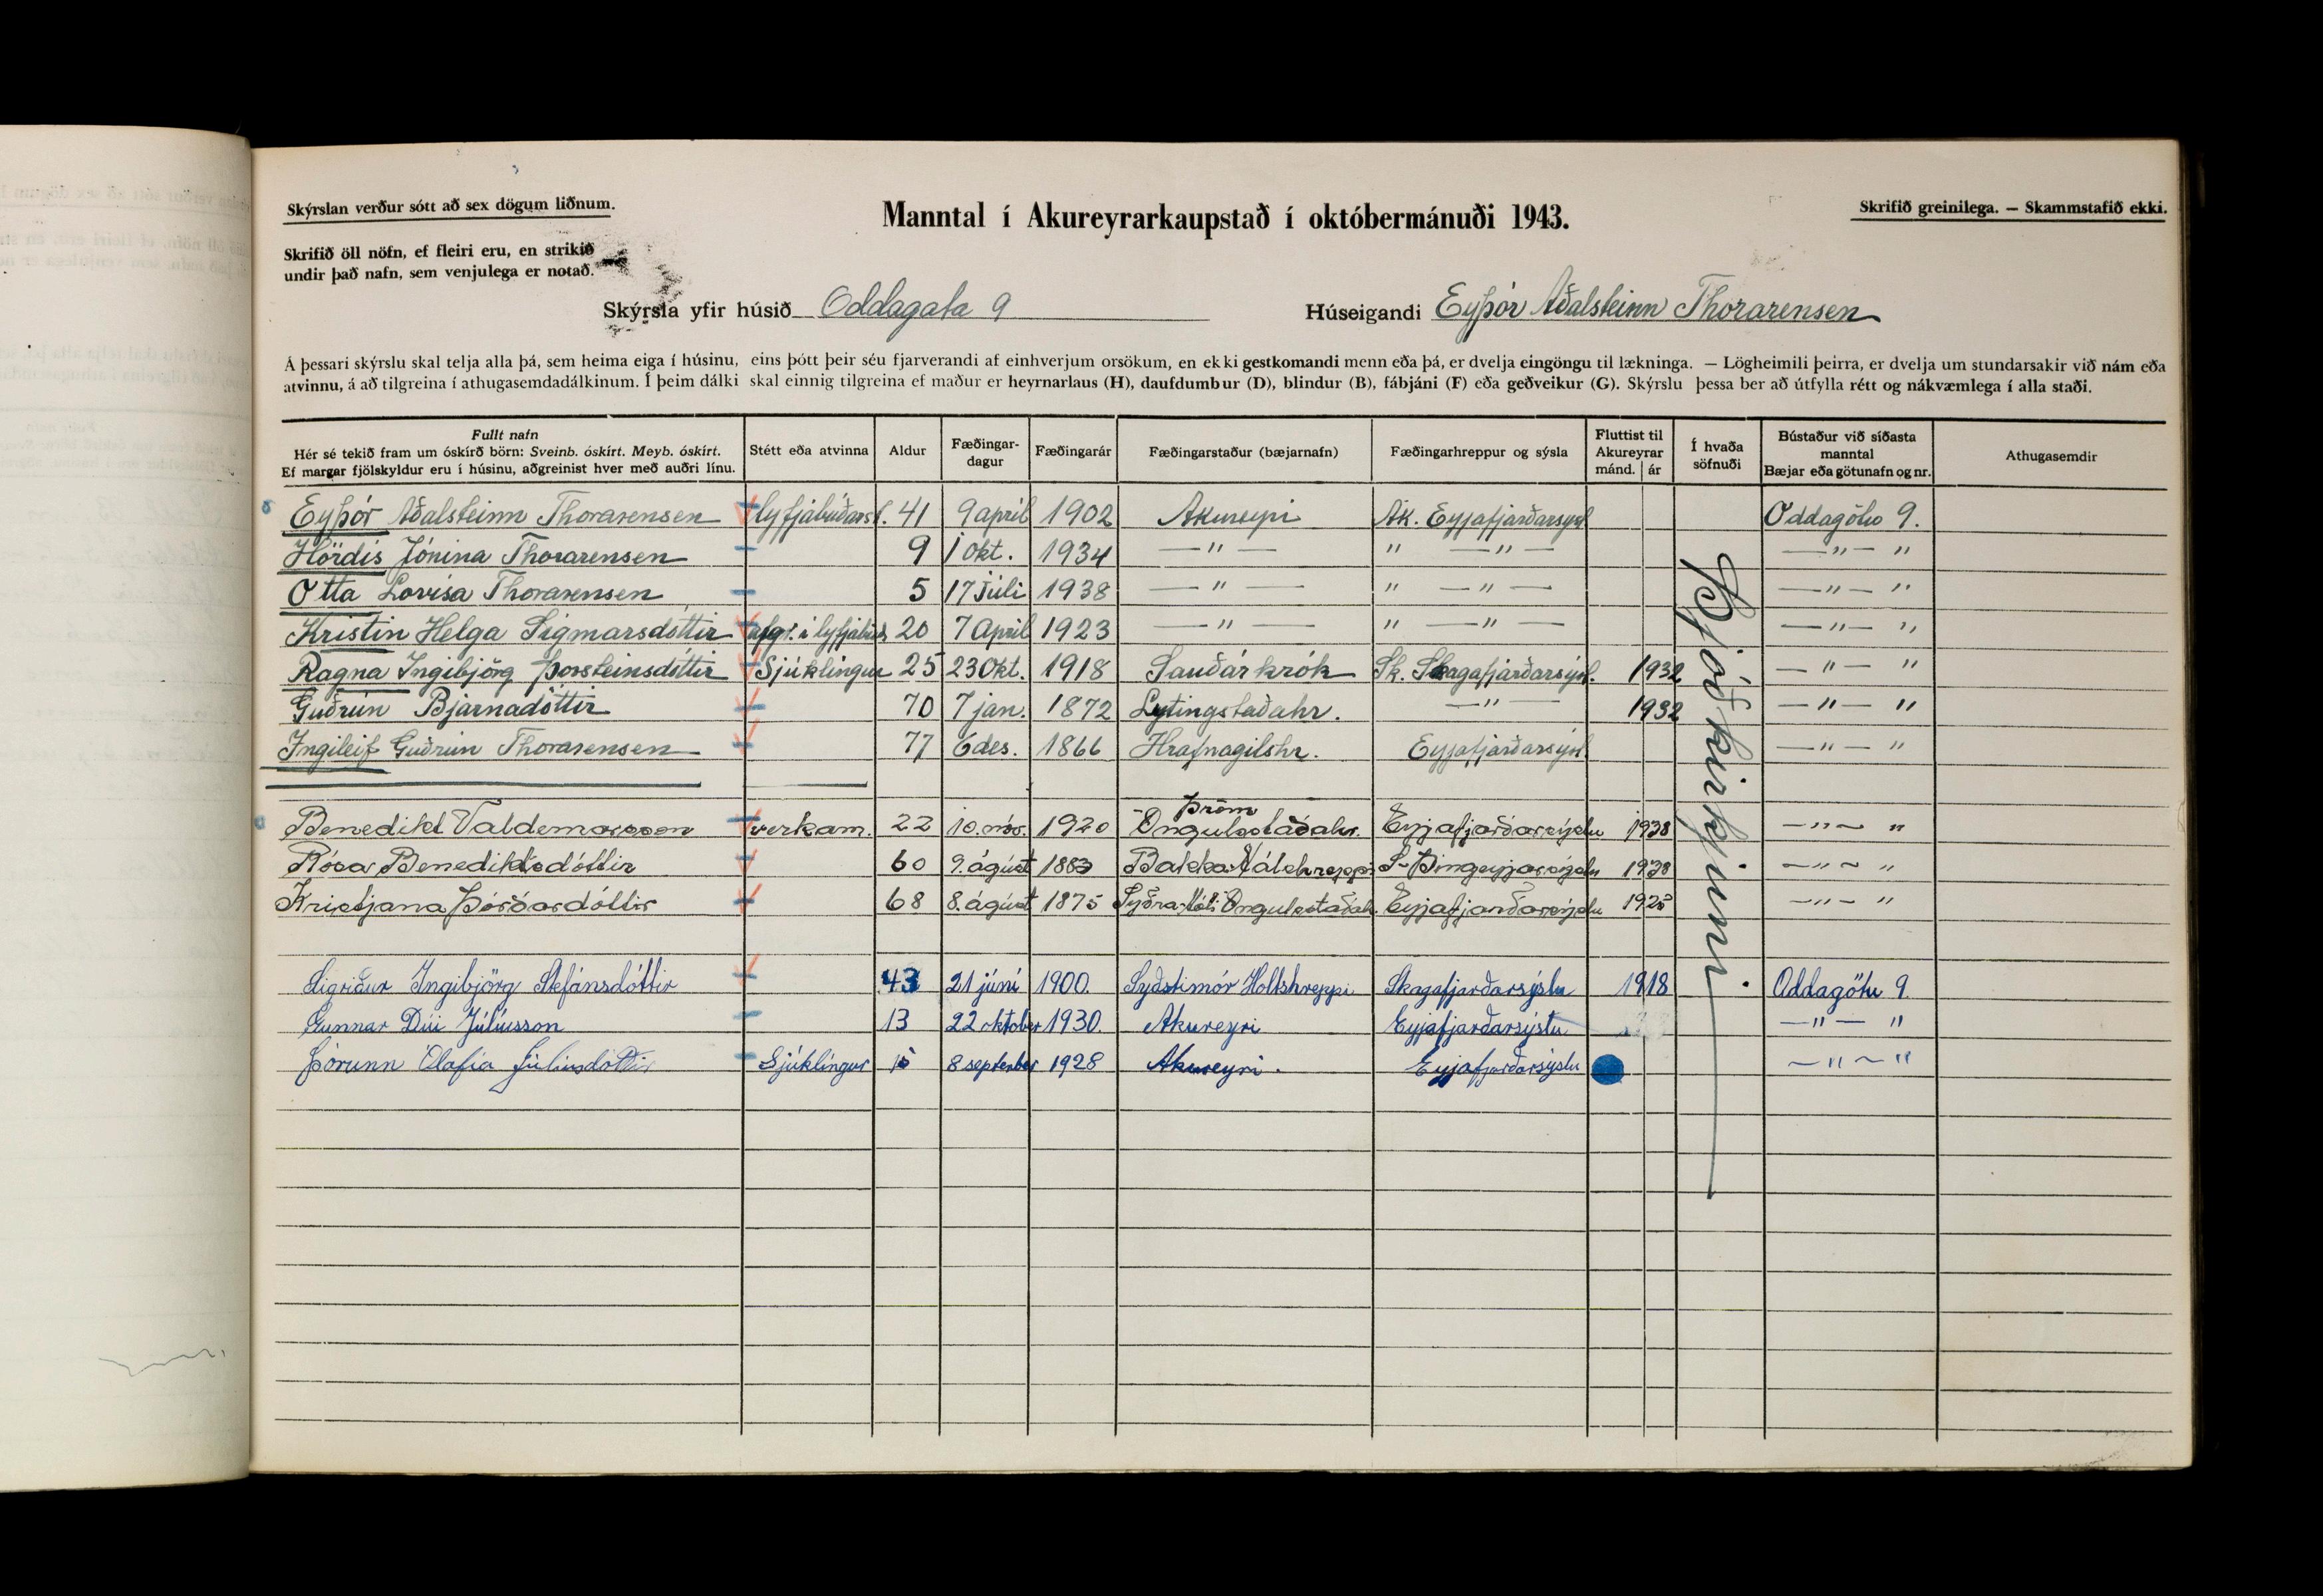 Skýrslan verður sótt að sex dögum liðnum.
Manntal í Akureyrarkaupstað í októbermánuði 1943.
Skrifið greinilega. — Skammstafið ekki.
Skrifið öll nöfn, ef fleiri eru, en strikið
undir það nafn, sem venjulega er notað.
Skýrsla yfir húsið Oddagata 9
Húseigandi Eyþór Aðalsteinn Thorarensen
Á þessari skýrslu skal telja alla þá, sem heima eiga í húsinu, eins þótt þeir séu fjarverandi af einhverjum orsökum, en ekki gestkomandi menn eða þá, er dvelja eingöngu til lækninga. — Lögheimili þeirra, er dvelja um stundarsakir við nám eða
atvinnu, á að tilgreina í athugasemdadálkinum. Í þeim dálki skal einnig tilgreina ef maður er heyrnarlaus (H), daufdumbur (D), blindur (B), fábjáni (F) eða geðveikur (G). Skýrslu þessa ber að útfylla rétt og nákvæmlega í alla staði.
Fullt nafn
Hér sé tekið fram um óskírð börn: Sveinb. óskírt. Meyb. óskírt.
Ef margar fjölskyldur eru í húsinu, aðgreinist hver með auðri línu.
Stétt eða atvinna
Aldur
Fæðingar-
dagur
Fæðingarár
Fæðingarstaður (bæjarnafn)
Fæðingarhreppur og sýsla
Fluttist til
Akureyrar
mánd. | ár
Í hvaða
söfnuði
Bústaður við síðasta
manntal
Bæjar eða götunafn og nr.
Athugasemdir
Eyþór Aðalsteinn Thorarensen lyfjabúðarst. 41 9 apríl 1902 Akureyri Ak. Eyjafjarðarsýsl Oddagötu 9.
Hördís Jónína Thorarensen 9 1 okt. 1934 — " — " — " — — " — "
Otta Lovísa Thorarensen 5 17 Júlí 1938 — " — " — " — — " — "
Kristín Helga Sigmarsdóttir afgr. í lyfjabúð 20 7 Apríl 1923 — " — " — " — — " — "
Ragna Ingibjörg Þorsteinsdóttir Sjúklingur 25 23 Okt. 1918 Sauðárkrók Sk. Skagafjarðarsýsl. 1932 — " — "
Guðrún Bjarnadóttir 70 7 jan. 1872 Lytingstaðahr. — " — 1932 — " — "
Ingileif Guðrún Thorarensen 77 6 des. 1866 Hrafnagilshr. Eyjafjarðarsýsl. — " — "
Þjóðkirkjunni
Þröm
Benedikt Valdemarsson verkam. 22 10. nóv. 1920 Öngulsstaðahr. Eyjafjarðarsýslu 1938 — " — "
Rósa Benediktsdóttir 60 9. ágúst 1883 Bakka Hálshreppi S-Þingeyjarsýslu 1938 — " — "
Kristjana Þórðardóttir 68 8. ágúst 1875 Syðra-Hóli Öngulsstaðah. Eyjafjarðarsýslu 1925 — " — "
Sigríður Ingibjörg Stefánsdóttir 43 21 júní 1900. Syðstimór Holtshreppi Skagafjarðarsýslu 1918 Oddagötu 9.
Gunnar Díi Júlíusson 13 22 oktober 1930. Akureyri Eyjafjarðarsýslu — " — "
Þórunn Ólafía Júlíusdóttir Sjúklingur 15 8 september 1928 Akureyri. Eyjafjarðarsýslu — " — "